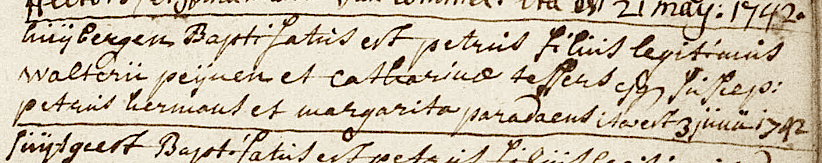 21 may: 1742.
huijbergen Baptisatus est petrus filius legitimus
Walterii peijnen et catharinæ tessers suscep:
petrus hermans et margarita paradaens ita est 3 junii 1742
Baptisatus est petrus filius